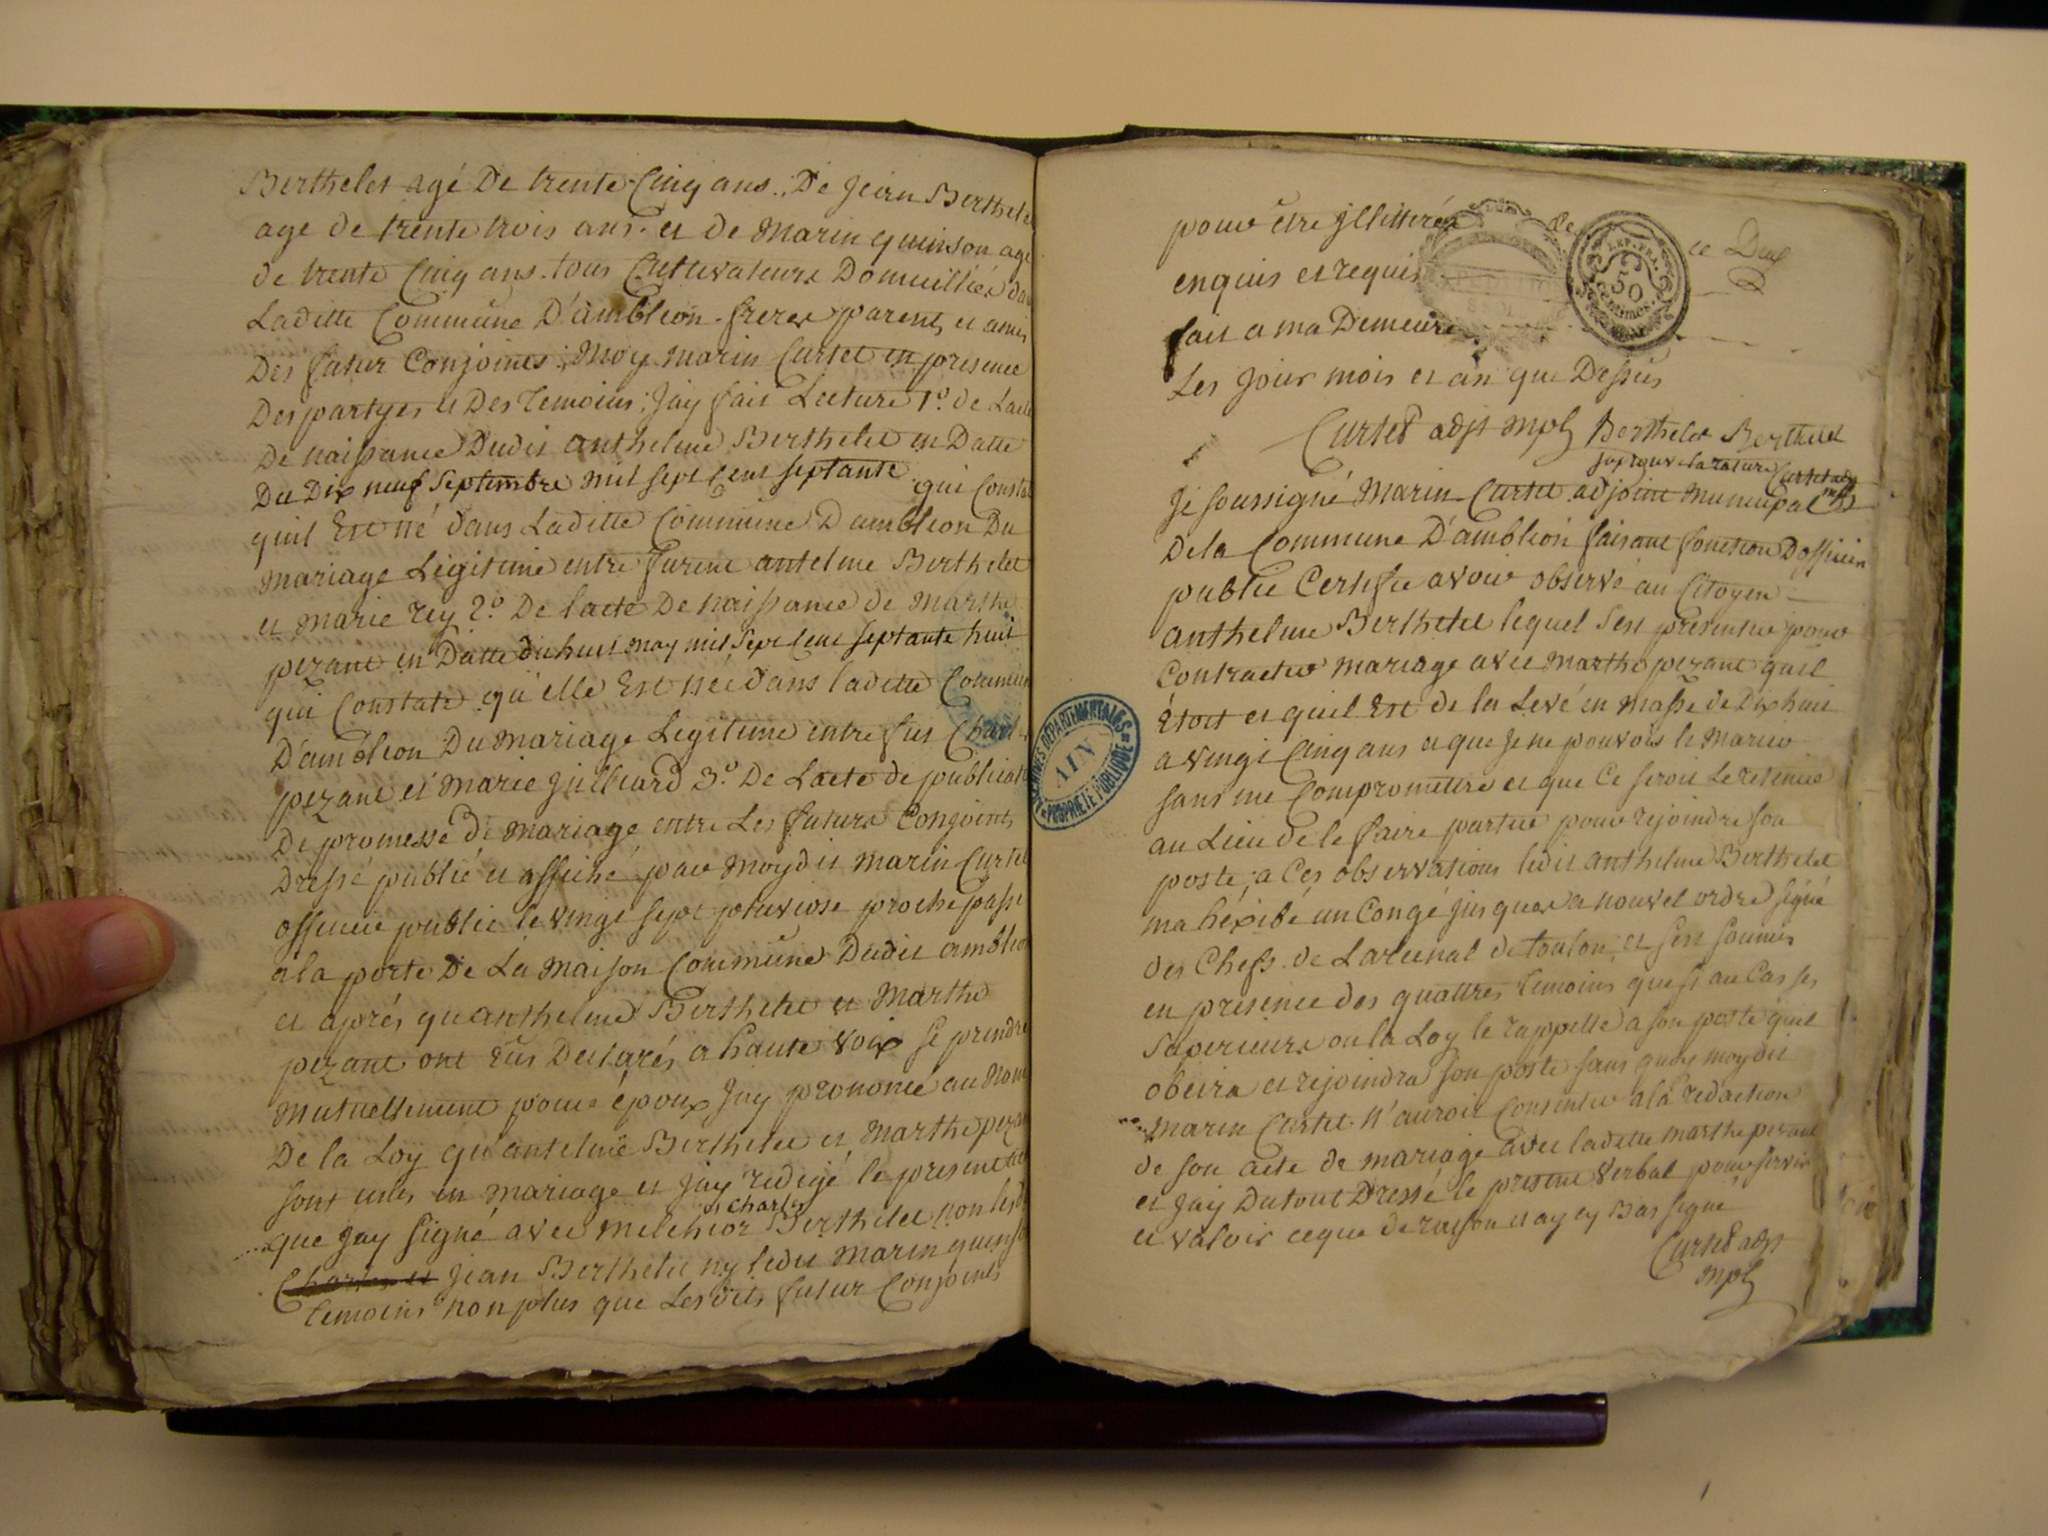 Berthelet agé De trente Cinq ans. De Jean Berthelet
age de trente trois ans. et de Marin quinson agé
de trente Cinq ans. tous Cultivateurs Domicilliés dan
Laditte Commune D'ambléon. freres parents et amis
Des futur Conjoints; Moy Marin Curtet en presence
Des partyes et Des temoins; Jay fait Lecture 1º. de Lacte
De naissance Dudit anthelme Berthelet en Datte
Du Dix neuf Septembre mil sept cent septante qui Consta
quil Est né dans Laditte Commune D'ambléon Du
mariage Légitime entre furent antelme Berthelet
et marie rey 2º. De lacte De naissance de Marthe
pezant en Datte du huit may mil sept cent septante huit
qui Constate qu'elle Est née dans laditte Commune
D'ambléon Du mariage Légitime entre fut Charl
pezant et Marie Juilliard 3º. De Lacte de publicat
De promesse de mariage entre Les futurs Conjoints
Dressé publié et affiché par moydit Marin Curtet
officier public le vingt sept pluviose proche passé
a la porte De La Maison Commune Dudit amblé
et aprés qu'anthelme Berthelet et Marthe
pezant ont Eus Declarés a haute voix se prendre
mutuellement pour époux Jay prononcé au Nom
De la Loy qu'antelme Berthelet et Marthe pezan
sont unis en mariage et Jay redigé le present acte
et Charles
que Jay signé avec Melchior Berthelet non lesd
Charles et Jean Berthelet ny ledit Marin quinson
temoins non plus que Lesdits futur Conjoints
pour être Jllitterés de ce Dux
enquis et requis
REP. FRA.
50
centimes.
fait a ma Demeure
Les Jour mois et an que Dessus
Curtet adjt mpl Berthelet Berthelet
Japrouve la rature Curtet adjt
mpl
Je soussigné Marin Curtet adjoint municipal
De la Commune D'ambléon faisant fonction D'officier
public Certifie avoir observé au Citoyen
anthelme Berthelet lequel s'est presenter pour
Contracter mariage avec Marthe pezant quil
étoit et quil Est de la Levé en masse de Dix huit
a vingt Cinq ans et que Je ne pouvois le marier
sans me Compromettre et que Ce seroit le retenir
au Lieu de le faire partir pour rejoindre son
poste; a Ces observations ledit anthelme Berthelet
ma héxibé un Congé jusques a nouvel ordre signé
des Chefs de Larcenal de toulon, et s'est soumis
en presence des quattres temoins que si au Cas ses
Superieurs ou la Loy le rappelle a son poste quil
obeira et rejoindra son poste sans quoy moydit
Marin Curtet N'auroit Consentir a la redaction
de son acte de mariage avec laditte marthe pezant
et Jay Dutout Dressé le present verbal pour servir
et valoir ceque de raison et ay cy Bas signé
Curtet adjt
mpl
ARCHIVES DEPARTEMENTALES
AIN
PROPRIÉTÉ PUBLIQUE